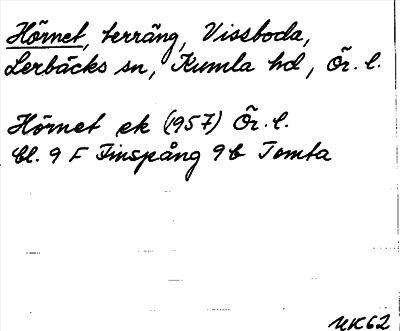 Hörnet, terräng, Vissboda,
Lerbäcks sn, Kumla hd, Ör. l.
Hörnet ek (1957) Ör. l.
bl. 9 F Finspång 9b Tomta
UK62